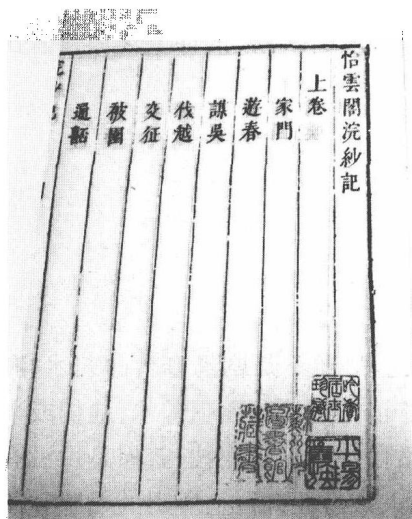 怡雲閣浣紗記
上卷
家門
遊春
謀吳
伐越
交征
被圍
通嚭